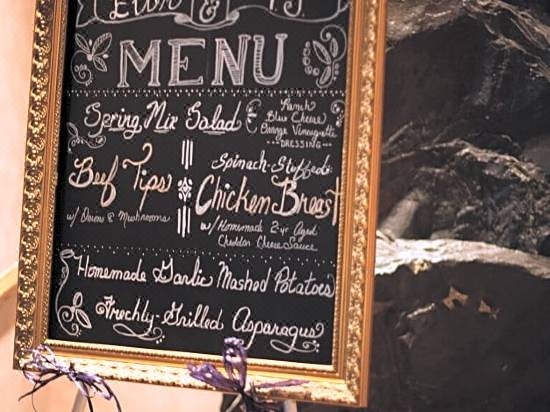 &
MENU
Spring Mix Salad
Ranch
Blue Cheese
Orange Vinaigrette
DRESSING
Beef Tips
w/ Onions & Mushrooms
Spinach-Stuffed
Chicken Breast
w/ Homemade 2-yr Aged
Cheddar Cheese Sauce
Homemade Garlic Mashed Potatoes
Freshly-Grilled Asparagus